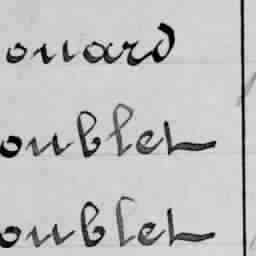 ouard
oublet
oublet